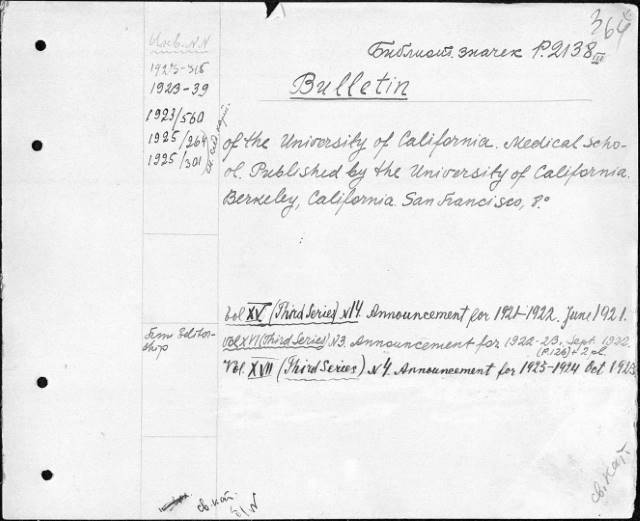 364
Библиот. значек P.2138 III
Инв. N.N
1923-315
1923-39
1923/560
1925/264
1925/301
Bulletin
of the University of California. Medical scho-
ol. Published by the University of California.
Berkeley, California. San Francisco, 8°
Vol XV (Third Series) N14. Announcement for 1921-1922. June 1921.
Vol XVI (Third Series) N3. Announcement for 1922-23. Sept. 1922
(P.126)+2 pl.
Vol. XVII (Third Series) N4. Announcement for 1923-1924 Oct. 1923
From Editor-
ship
св. кат.
св. кат.